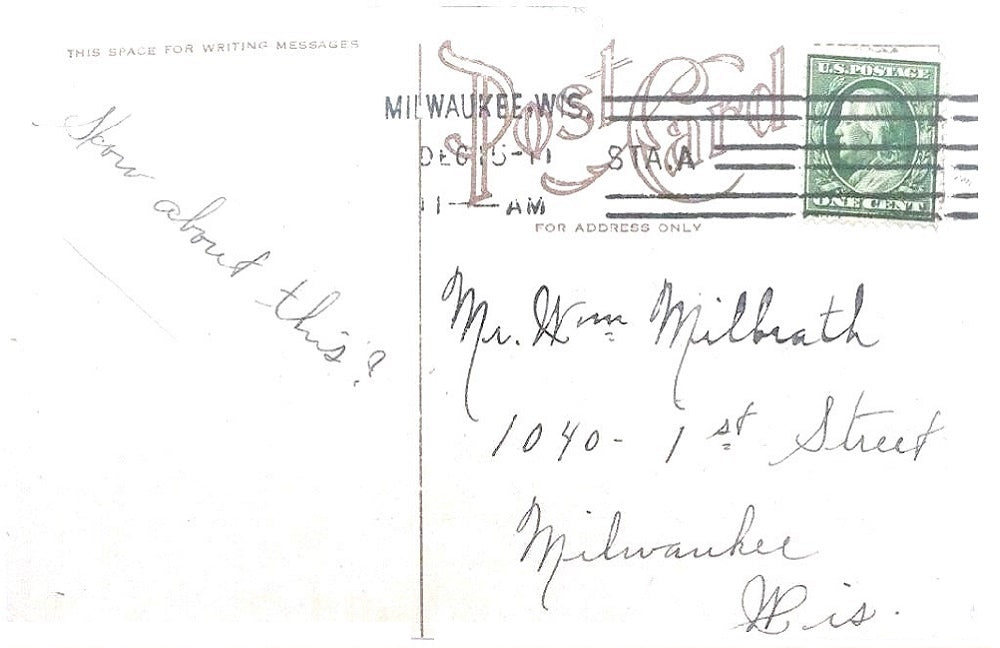 THIS SPACE FOR WRITING MESSAGES
Post Card
U.S. POSTAGE
MILWAUKEE, WIS.
DEC 15-11 STA.A
11— AM
ONE CENT
FOR ADDRESS ONLY
about this?
Mr. Wm Milbrath
1040 - 1st Street
Milwaukee
Wis.